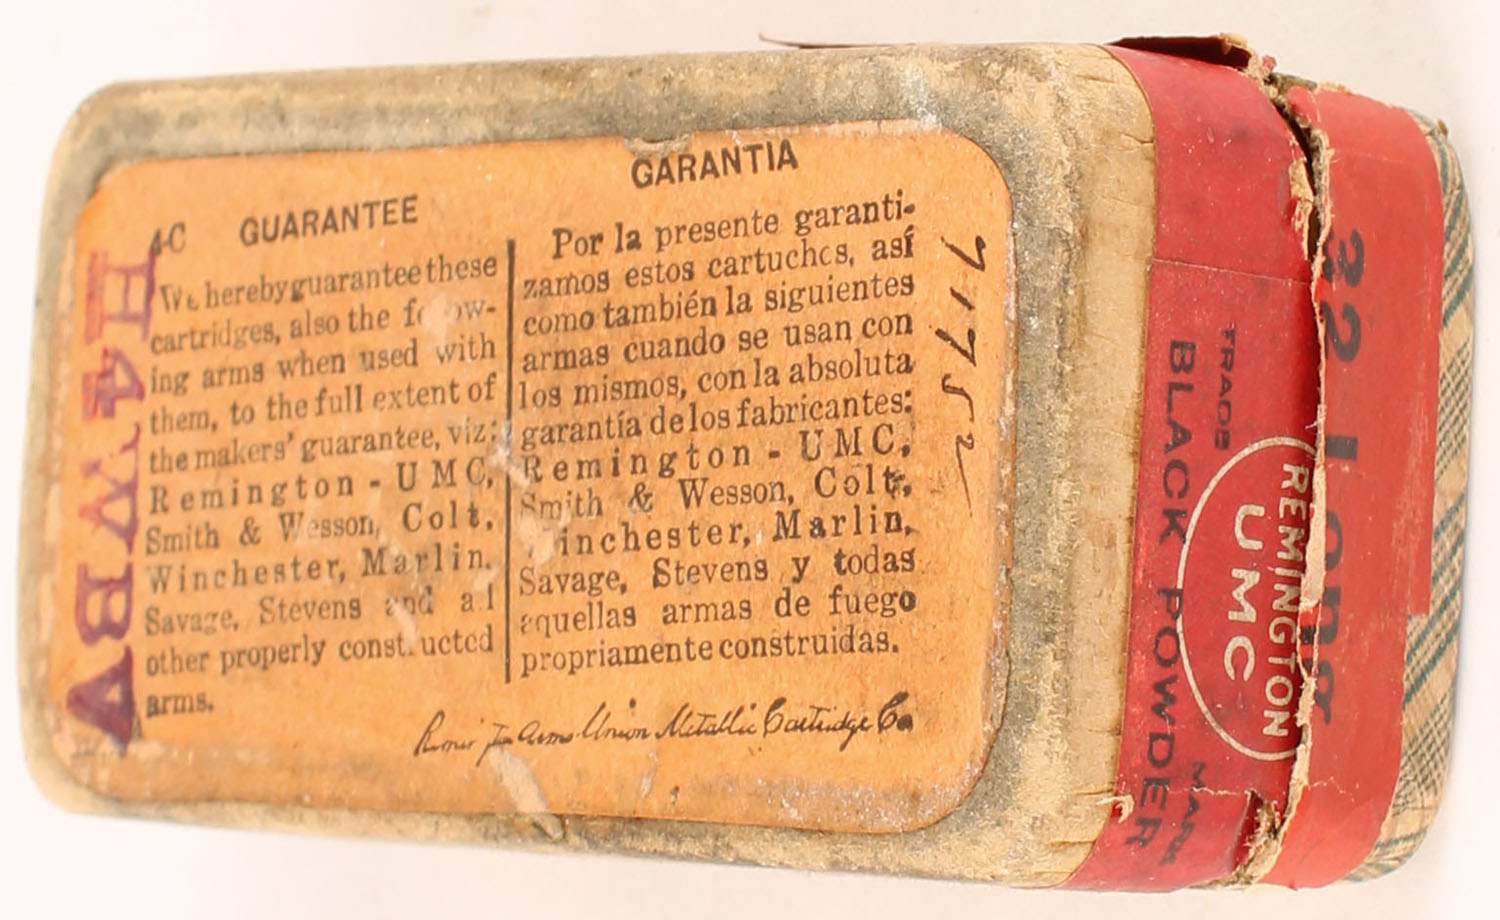 4-C
GUARANTEE
We hereby guarantee these
cartridges, also the
ing arms when used with
them, to the full extent of
the makers' guarantee, viz:
Remington - UMC,
Smith & Wesson, Colt,
Winchester, Marlin.
Savage, Stevens and
other properly constructed
arms.
GARANTIA
Por la presente garanti-
zamos estos cartuchos, así
como también la siguientes
armas cuando se usan con
los mismos, con la absoluta
garantía de los fabricantes:
Remington - UMC,
Smith & Wesson, Colt,
Winchester, Marlin,
Savage, Stevens y todas
aquellas armas de fuego
propriamente construidas.
Arms-Union Metallic Cartridge Co
H4WBV
71752
32 Long
TRADE MARK
REMINGTON
UMC
BLACK POWDER